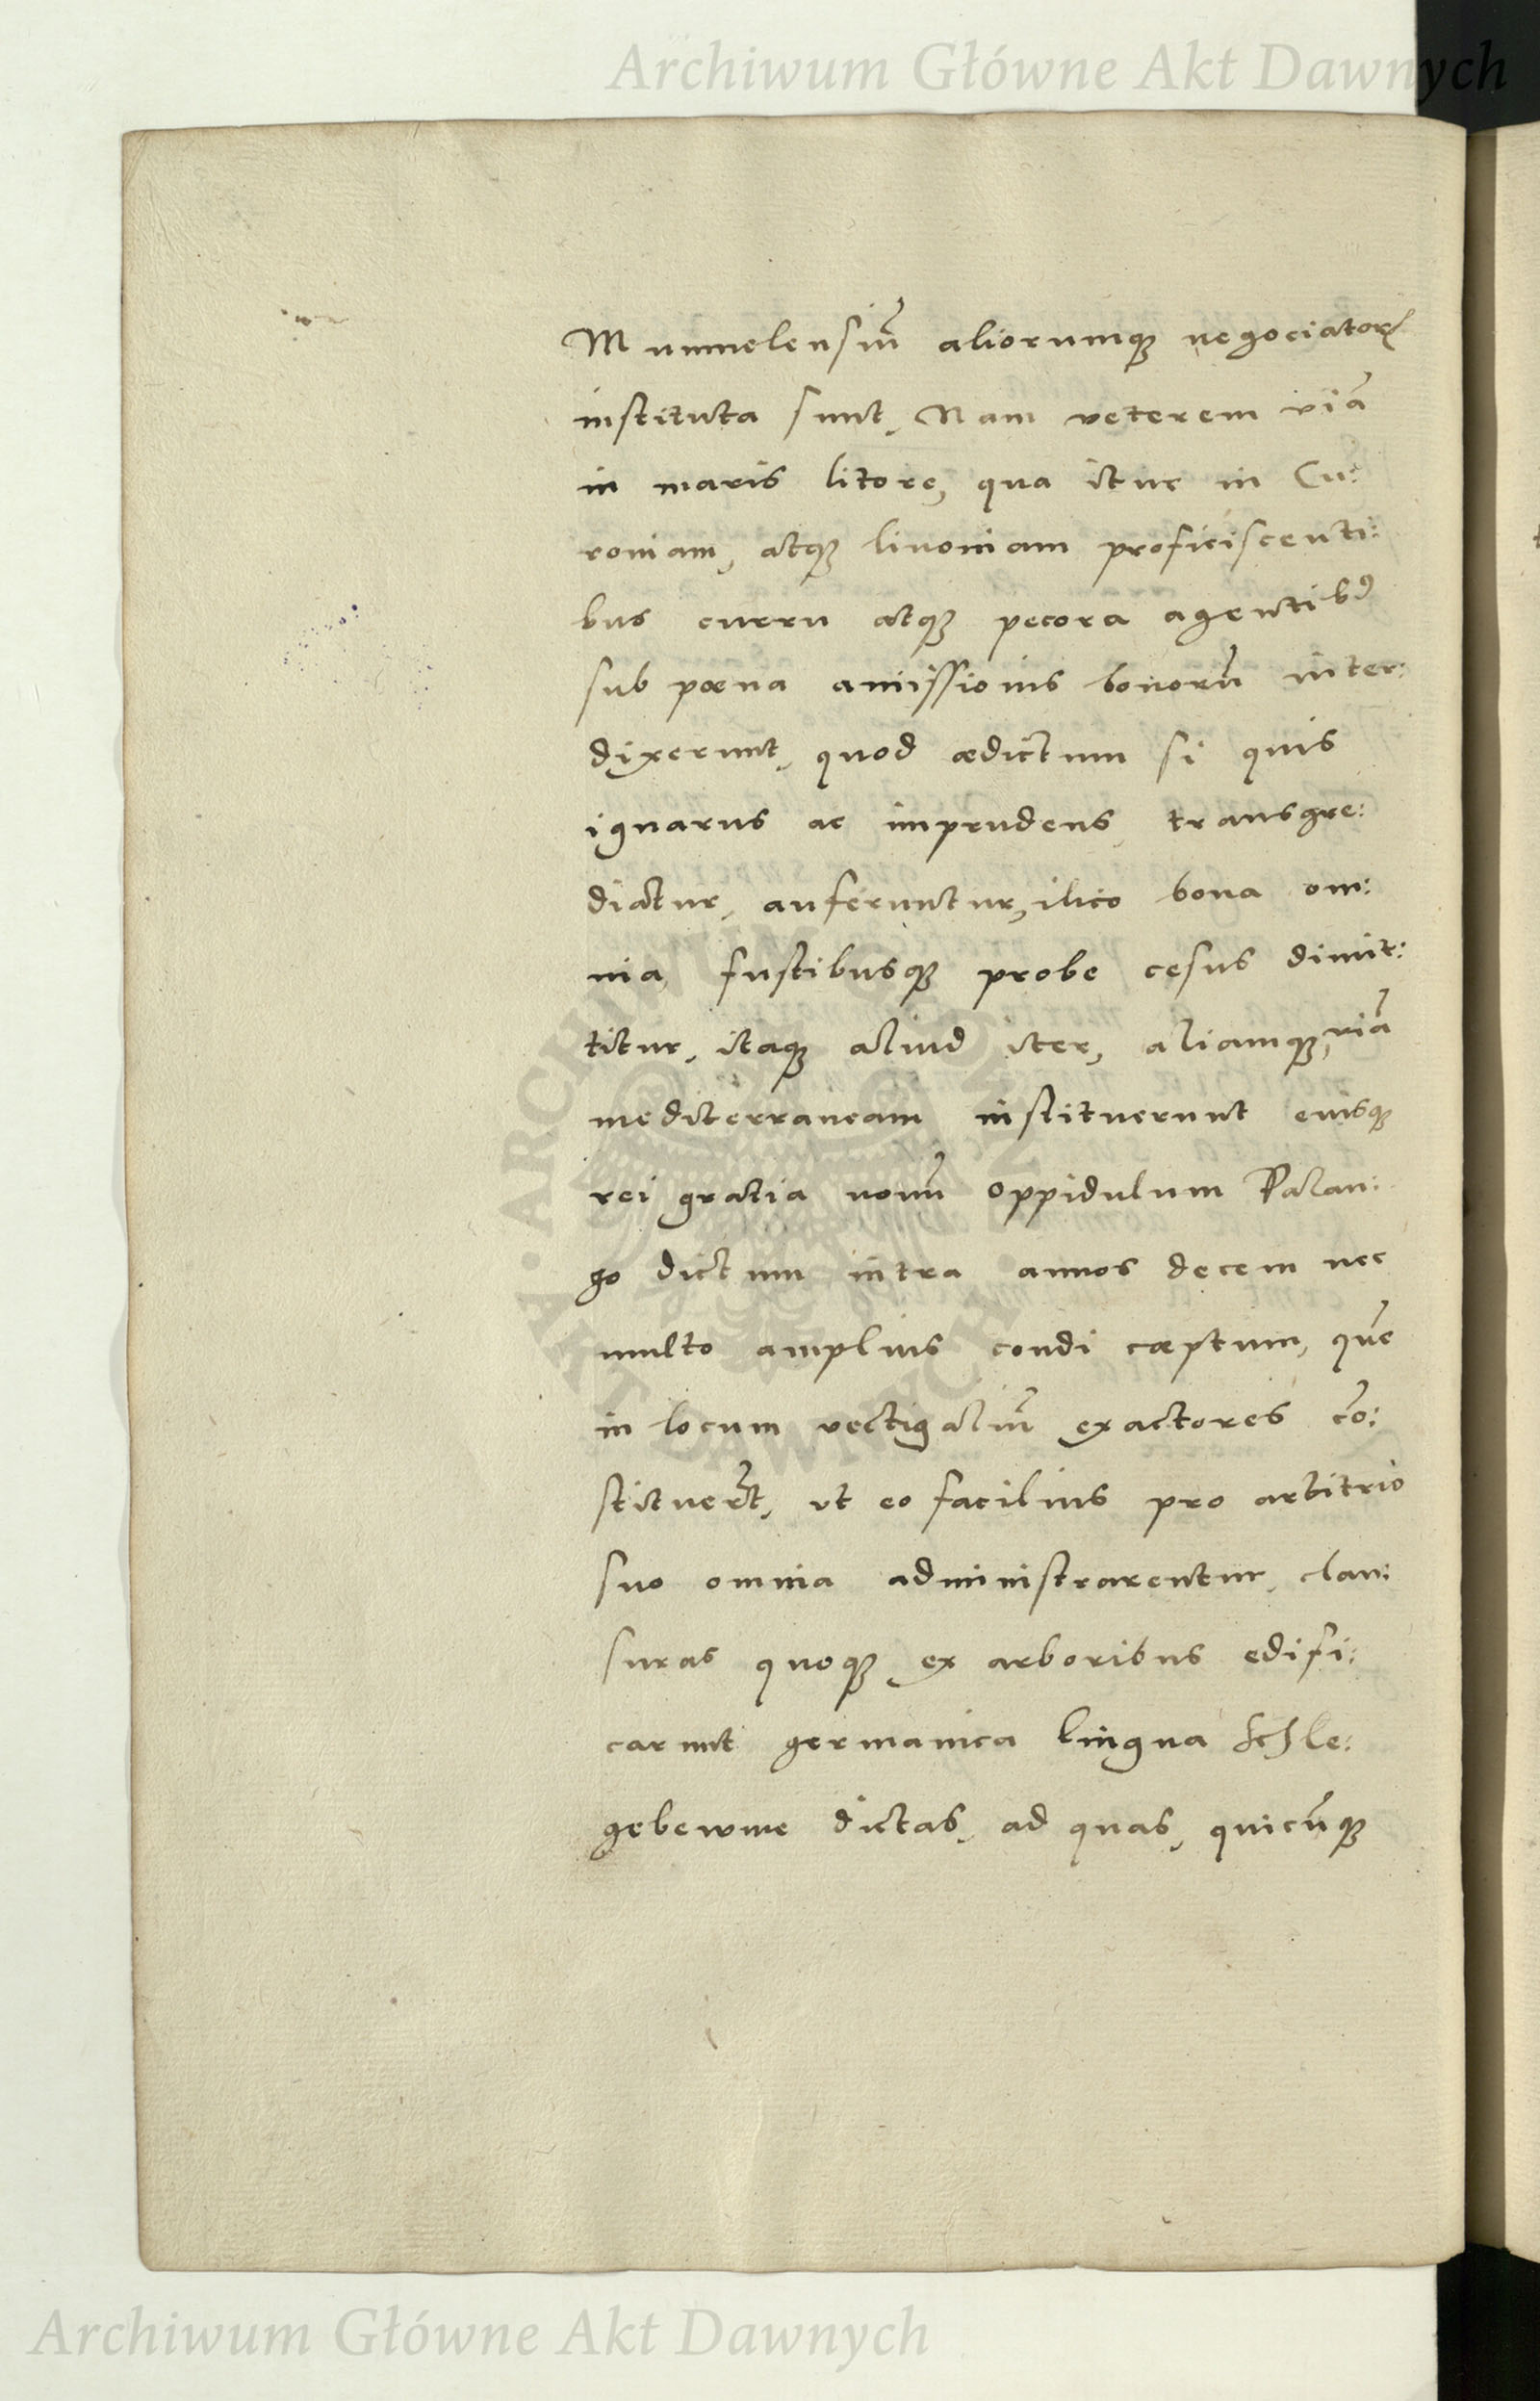 Archiwum Główne Akt Dawnych
Mummelensiū aliorumqꝫ negociatorꝝ
instituta sunt, Nam veterem viā
in maris litore, qua itur in Cu:
roniam, atqꝫ livoniam proficiscenti:
bus curru atqꝫ pecora agentibꝰ
sub pœna amissionis bonorū inter:
dixerunt, quod ædictum si quis
ignarus ac imprudens, transgre:
diatur, auferuntur, ilico bona om:
nia, fustibusqꝫ probe cesus dimit:
titur, itaqꝫ aliud iter, aliamqꝫ, viā
mediterraneam instituerunt eiusqꝫ
rei gratia novū oppidulum Palan:
go dictum intra annos decem nec
multo amplius condi cœptum, quē
in locum vectigaliū exactores cō:
stituerūt, ut eo facilius pro arbitrio
suo omnia administrarentur, clau:
suras quoqꝫ ex arboribus edifi:
carunt germanica lingua Schle:
gebewme dictas, ad quas, quicūqꝫ
ARCHIWUM GŁÓWNE AKT DAWNYCH
Archiwum Główne Akt Dawnych